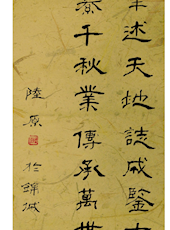 述天地誌盛鑒
千秋業傳承萬世
陸原
於錦城